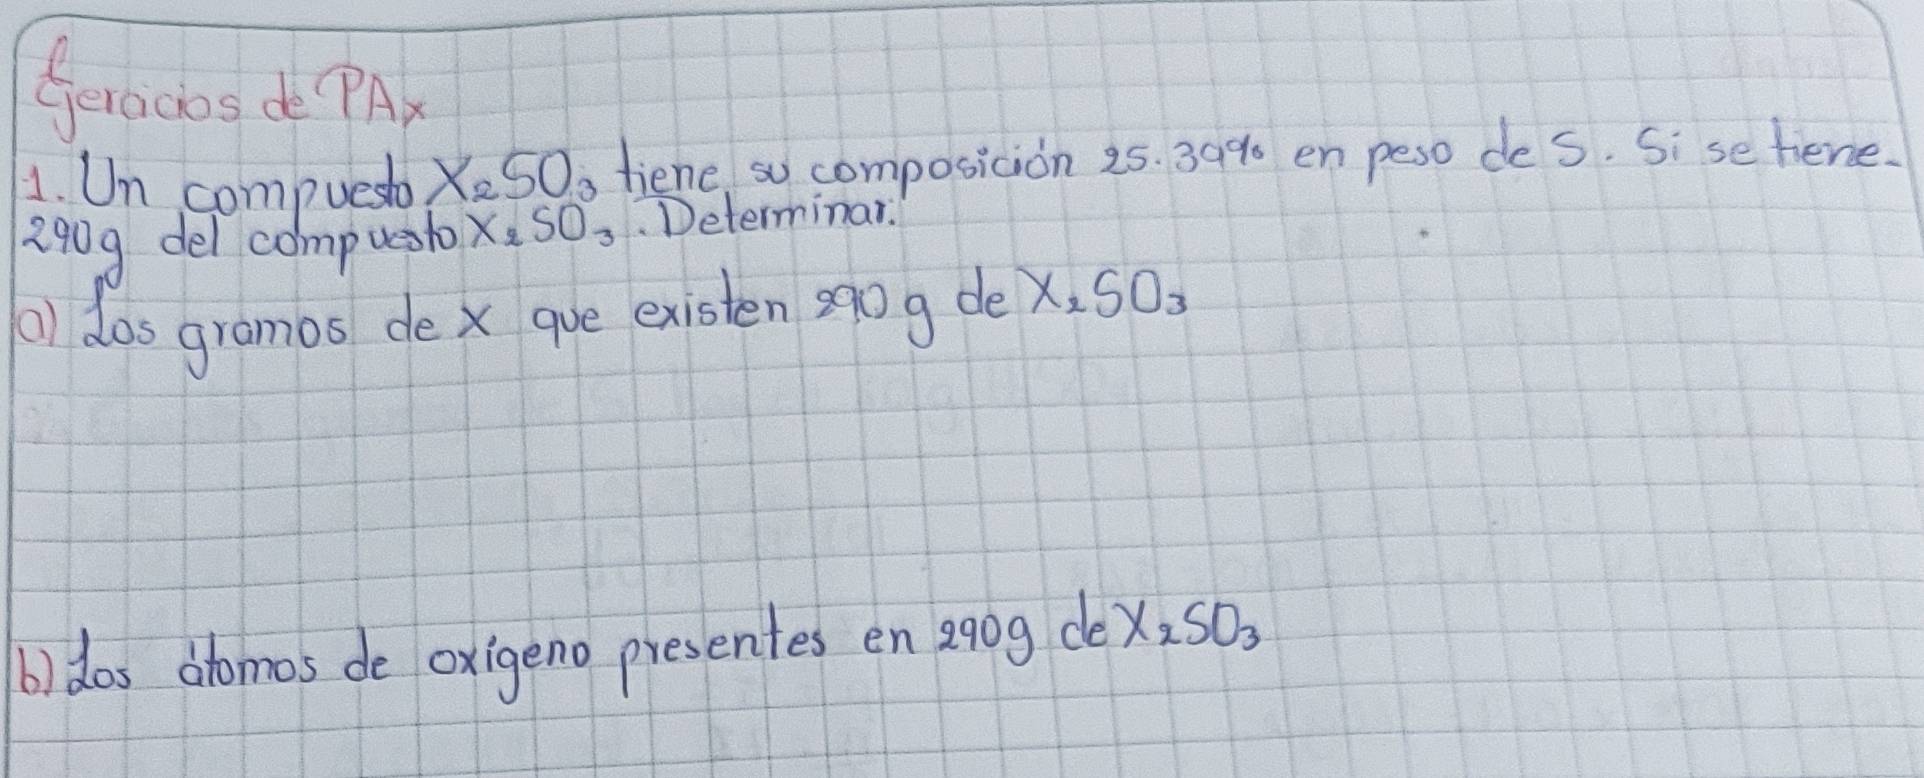 Ejercicios de PAx
1. Un compuesto X₂SO₃ tiene su composición 25.39% en peso de S. Si se tiene
290g del compuesto X₂SO₃. Determinar:
a) Los gramos de X que existen 290g de X₂SO₃
b) Los átomos de oxígeno presentes en 290g de X₂SO₃